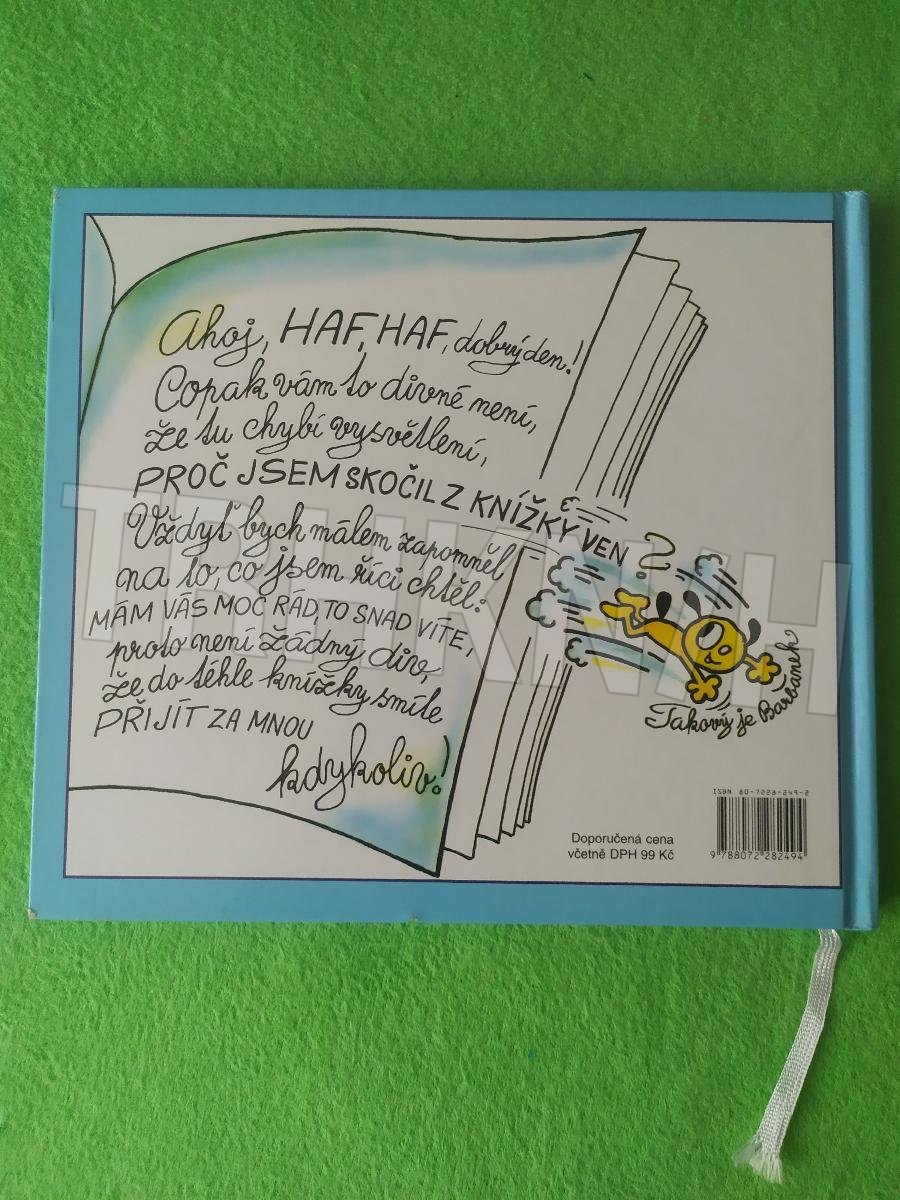 Ahoj, HAF, HAF, dobrý den!
Copak vám to divné není,
že tu chybí vysvětlení,
PROČ JSEM SKOČIL Z KNÍŽKY VEN?
Vždyť bych málem zapomněl
na to, co jsem říci chtěl:
MÁM VÁS MOC RÁD, TO SNAD VÍTE,
proto není žádný div,
že do téhle knížky smíte
PŘIJÍT ZA MNOU
kdykoliv!
Takový je Barbánek
ISBN 80-7228-249-2
9 788072 282494
Doporučená cena
včetně DPH 99 Kč
TRHKNIH